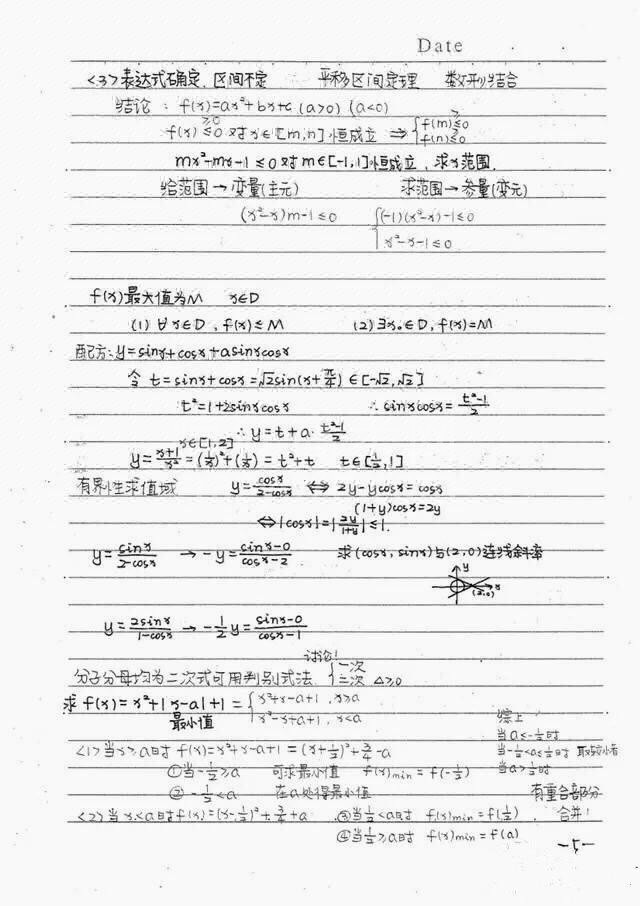 Date
<3>表达式确定,区间不定 平移区间定理 数形结合
结论: f(x)=ax²+bx+c (a>0) (a<0)
f(x) ≤0 对x∈[m,n]恒成立 ⇒ {f(m)≤0
≥0 f(n)≤0
mx²-mx-1≤0对m∈[-1,1]恒成立,求x范围.
给范围→变量(主元) 求范围→参量(变元)
(x²-x)m-1≤0 {(-1)(x²-x)-1≤0
x²-x-1≤0
f(x)最大值为M x∈D
(1) ∀x∈D, f(x)≤M (2)∃x₀∈D, f(x)=M
配方: y=sinx+cosx+asinxcosx
令 t=sinx+cosx=√2sin(x+π/4)∈[-√2,√2]
t²=1+2sinxcosx ∴sinxcosx=(t²-1)/2
∴y=t+a·(t²-1)/2
x∈[1,2]
y=(x+1)/x²=(1/x)²+(1/x)=t²+t t∈[1/2,1]
有界性求值域 y=cosx/(2-cosx) ⇔ 2y-ycosx=cosx
(1+y)cosx=2y
⇔|cosx|=|2y/(1+y)|≤1.
y=sinx/(2-cosx) → -y=(sinx-0)/(cosx-2) 求(cosx,sinx)与(2,0)连线斜率
y
x
(2,0)
y=2sinx/(1-cosx) → -1/2y=(sinx-0)/(cosx-1)
讨论!
分子分母均为二次式可用判别式法. {一次
二次 Δ≥0
求 f(x)=x²+|x-a|+1={x²+x-a+1, x≥a
最小值 x²-x+a+1, x<a
综上
当a≤-1/2时
<1>当x≥a时 f(x)=x²+x-a+1=(x+1/2)²+3/4-a
当-1/2<a≤1/2时 取较小者
①当-1/2≥a 可求最小值 f(x)min=f(-1/2)
当a>1/2时
② -1/2<a 在a处得最小值
有重合部分
<2>当x<a时f(x)=(x-1/2)²+3/4+a ③当1/2<a时 f(x)min=f(1/2). 合并!
④当1/2≥a时 f(x)min=f(a)
-5-